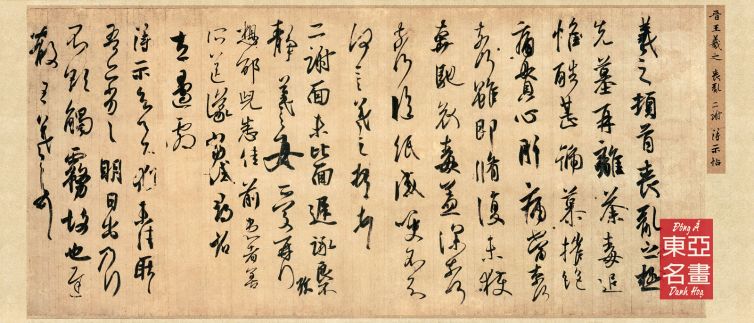 晉王羲之 喪亂 二謝 得示帖
羲之頓首喪亂之極
先墓再離荼毒追
惟酷甚號慕摧絕
痛貫心肝痛當奈何
奈何雖即脩復未獲
奔馳哀毒益深奈何
奈何臨紙感哽不知
何言羲之頓首頓首
二謝面未比面遲詠良不
靜羲之女愛再拜
想邰兒悉佳前患者善
所送議當試尋省
左邊劇
得示知足下猶未佳耿耿
吾亦劣劣明日出乃行
不欲觸霧故也遲
散王羲之頓首
Đông Á
東亞
名畫
Danh Hoạ